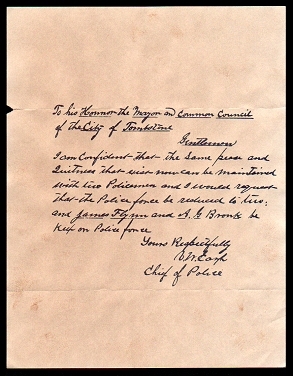 To his Honnor the Mayor and Common Council
of the City of Tombstone
Gentlemen
I am Confident that the same peace and
Quitness that exist now can be maintained
with two Policemen and I would request
that the Police force be reduced to two;
and James Flynn and A. G. Bronk be
Kept on Police force
Yours Respectfully
V. W. Earp
Chief of Police